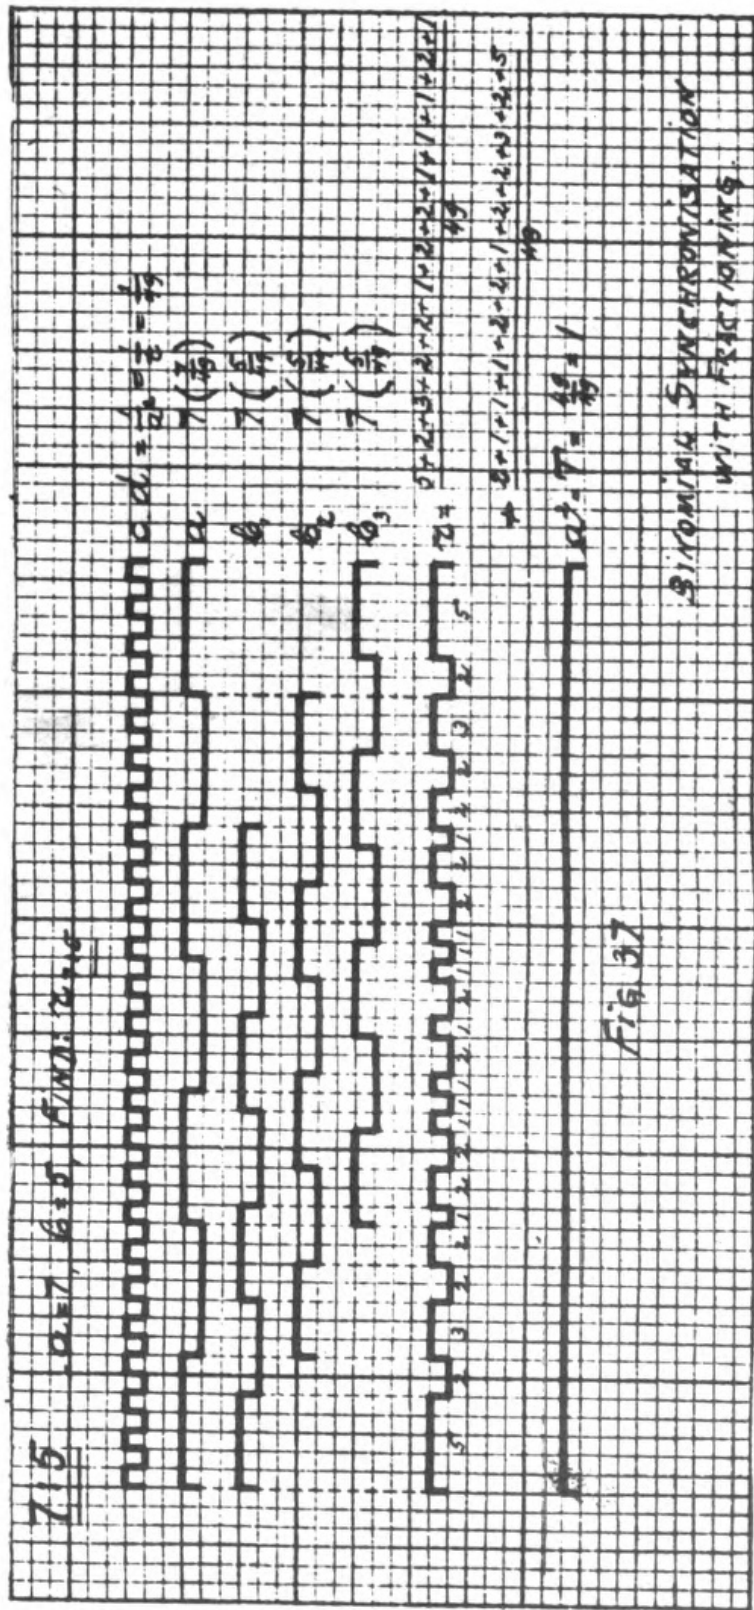 7÷5 a=7, b=5, FIND: r7÷5
cd = 1/a² = 1/t = 1/49
a 7(7/49)
b₁ 7(5/49)
b₂ 7(5/49)
b₃ 7(5/49)
r = 5+2+3+2+2+1+2+2+1+1+1+2+1
49
+ 2+1+1+1+2+2+1+2+2+3+2+5
49
5 2 3 2 2 1 2 2 1 1 2 1 2 1 1 2 1 2 2 3 2 5
a² = T = 49/49 = 1
FIG. 37
BINOMIAL SYNCHRONISATION
WITH FRACTIONING